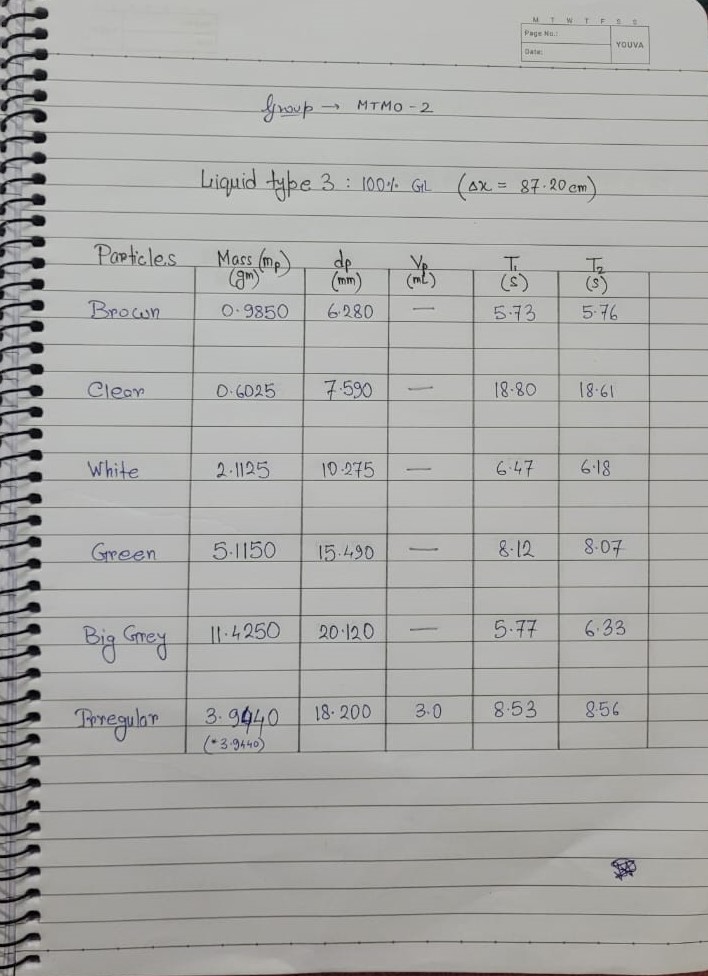 M T W T F S S
Page No.:
YOUVA
Date:
Group → MTMO-2
Liquid type 3 : 100% GL (Δx = 87.20 cm)
Particles Mass (mp) (gm) dp (mm) Vp (mL) T1 (s) T2 (s)
Brown 0.9850 6.280 — 5.73 5.76
Clear 0.6025 7.590 — 18.80 18.61
White 2.1125 10.275 — 6.47 6.18
Green 5.1150 15.490 — 8.12 8.07
Big Grey 11.4250 20.120 — 5.77 6.33
Irregular 3.9440 18.200 3.0 8.53 8.56
(*3.9440)